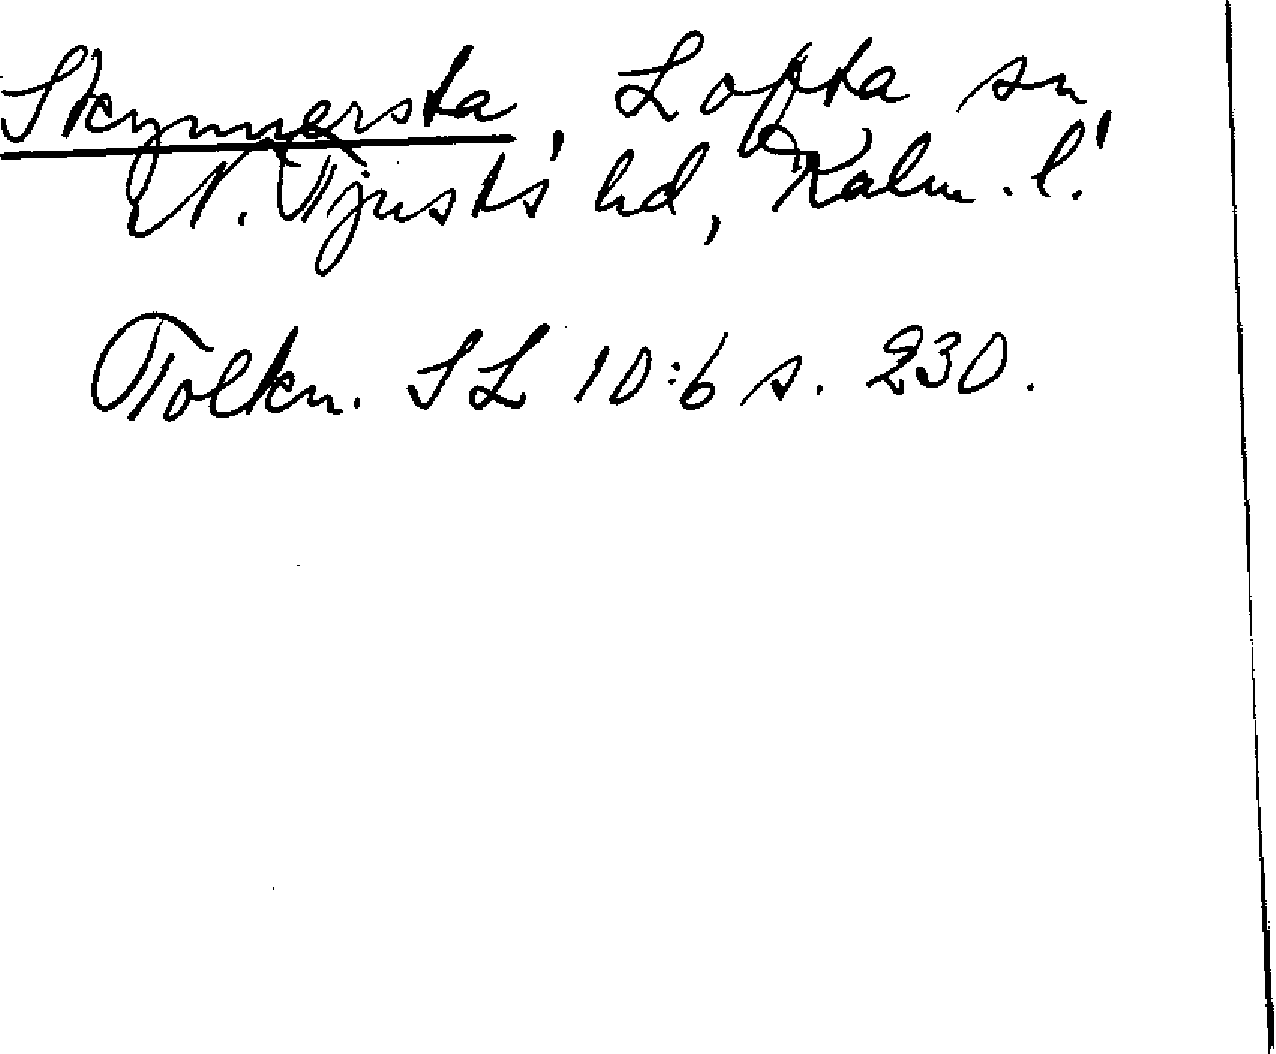 Skynnersta, Lofta sn,
N. Tjusts hd, Kalm. l.
Tolkn. SL 10:6 s. 230.